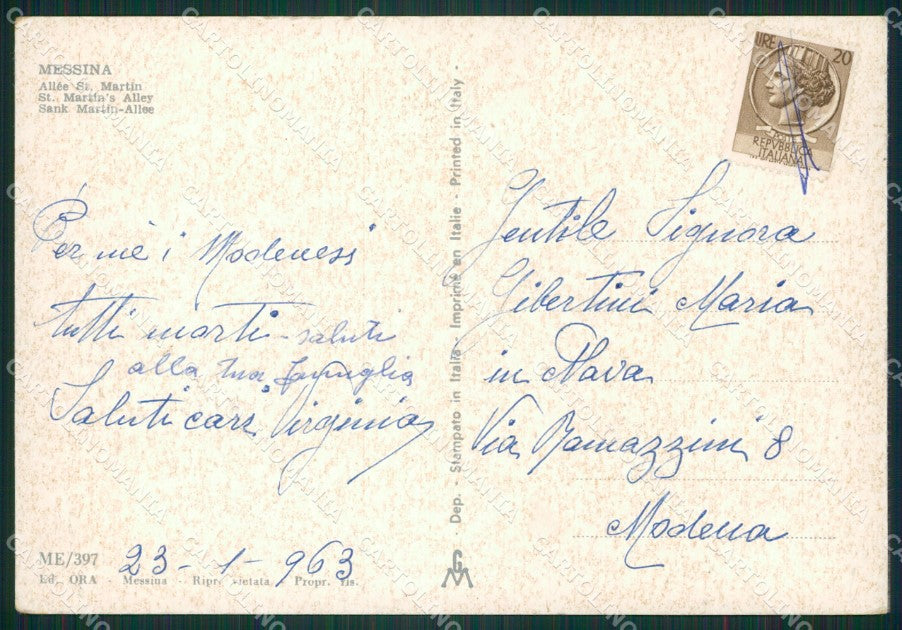 MESSINA
Allée St. Martin
St. Martin's Alley
Sank Martin-Allee
Per mè i Modenesi
tutti morti - saluti
alla tua famiglia
Saluti cari Virginia
ME/397
23-1-963
Ed. ORA - Messina - Ripr. vietata Propr. ris.
Dep. - Stampato in Italia - Imprimé en Italie - Printed in Italy -
LIRE 20
REPVBBLICA
ITALIANA
Gentile Signora
Gibertini Maria
in Nava
Via Ramazzini 8
Modena
CARTOLINOMANIA